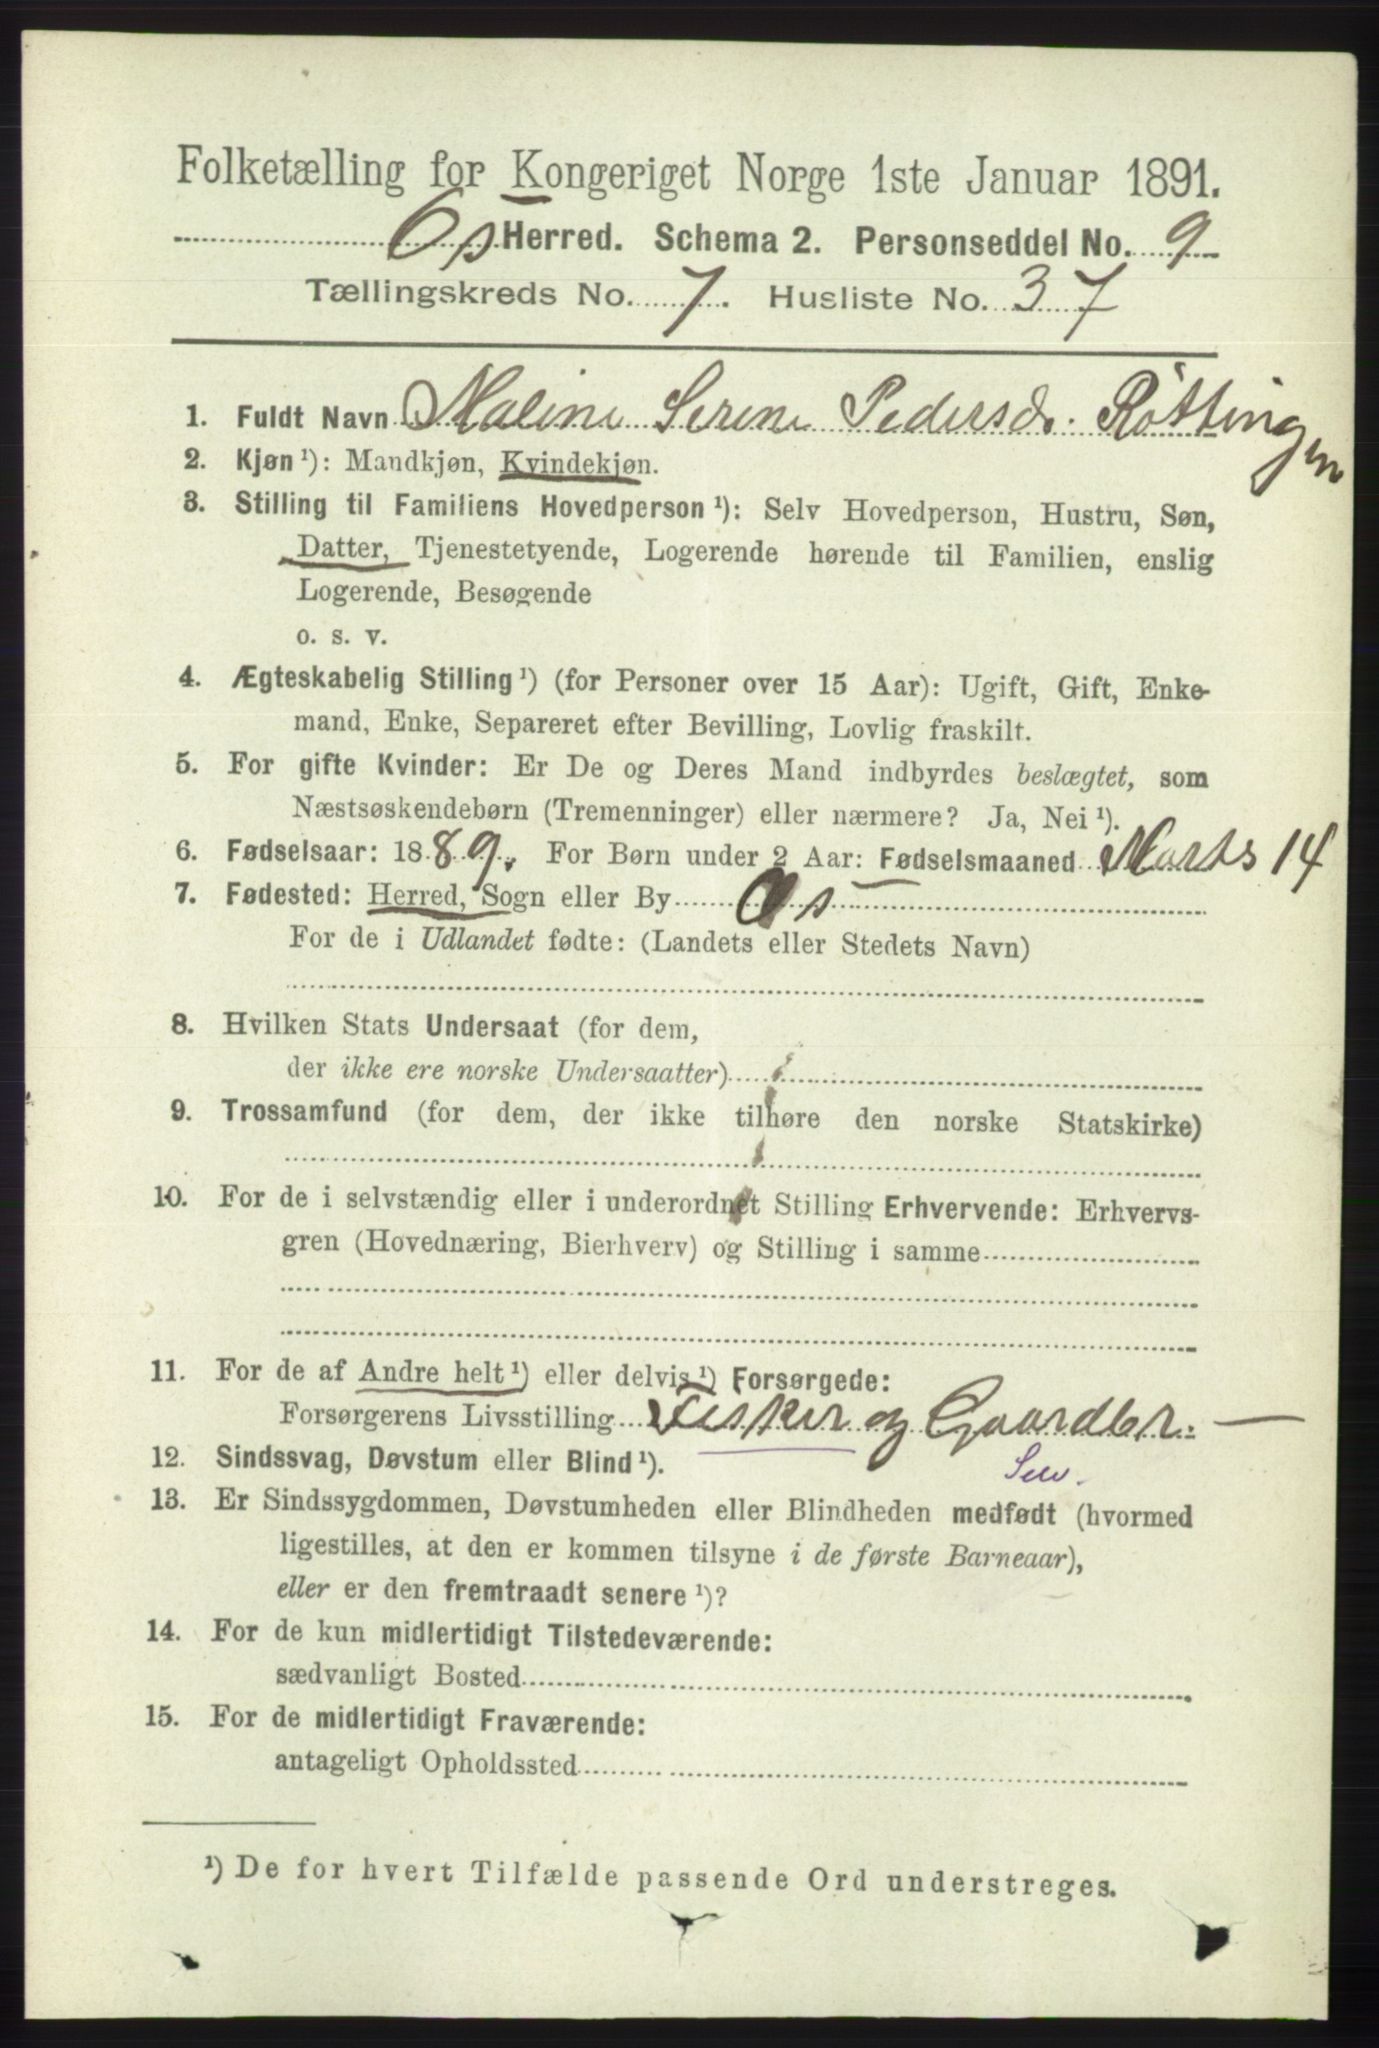 Folketælling for Kongeriget Norge 1ste Januar 1891.
Os Herred. Schema 2. Personseddel No. 9
Tællingskreds No. 7. Husliste No. 37
1. Fuldt Navn Maline Serene Pedersd. Røttingen
2. Kjøn ¹): Mandkjøn, Kvindekjøn.
3. Stilling til Familiens Hovedperson ¹): Selv Hovedperson, Hustru, Søn,
Datter, Tjenestetyende, Logerende hørende til Familien, enslig
Logerende, Besøgende
o. s. v.
4. Ægteskabelig Stilling ¹) (for Personer over 15 Aar): Ugift, Gift, Enke-
mand, Enke, Separeret efter Bevilling, Lovlig fraskilt.
5. For gifte Kvinder: Er De og Deres Mand indbyrdes beslægtet, som
Næstsøskendebørn (Tremenninger) eller nærmere? Ja, Nei ¹).
6. Fødselsaar: 1889. For Børn under 2 Aar: Fødselsmaaned Marts 14
7. Fødested: Herred, Sogn eller By Os
For de i Udlandet fødte: (Landets eller Stedets Navn)
8. Hvilken Stats Undersaat (for dem,
der ikke ere norske Undersaatter)
9. Trossamfund (for dem, der ikke tilhøre den norske Statskirke)
10. For de i selvstændig eller i underordnet Stilling Erhvervende: Erhvervs-
gren (Hovednæring, Bierhverv) og Stilling i samme
11. For de af Andre helt ¹) eller delvis ¹) Forsørgede:
Forsørgerens Livsstilling Fisker og Gaardbr. —
12. Sindssvag, Døvstum eller Blind ¹). Selv.
13. Er Sindssygdommen, Døvstumheden eller Blindheden medfødt (hvormed
ligestilles, at den er kommen tilsyne i de første Barneaar),
eller er den fremtraadt senere ¹)?
14. For de kun midlertidigt Tilstedeværende:
sædvanligt Bosted
15. For de midlertidigt Fraværende:
antageligt Opholdssted
¹) De for hvert Tilfælde passende Ord understreges.